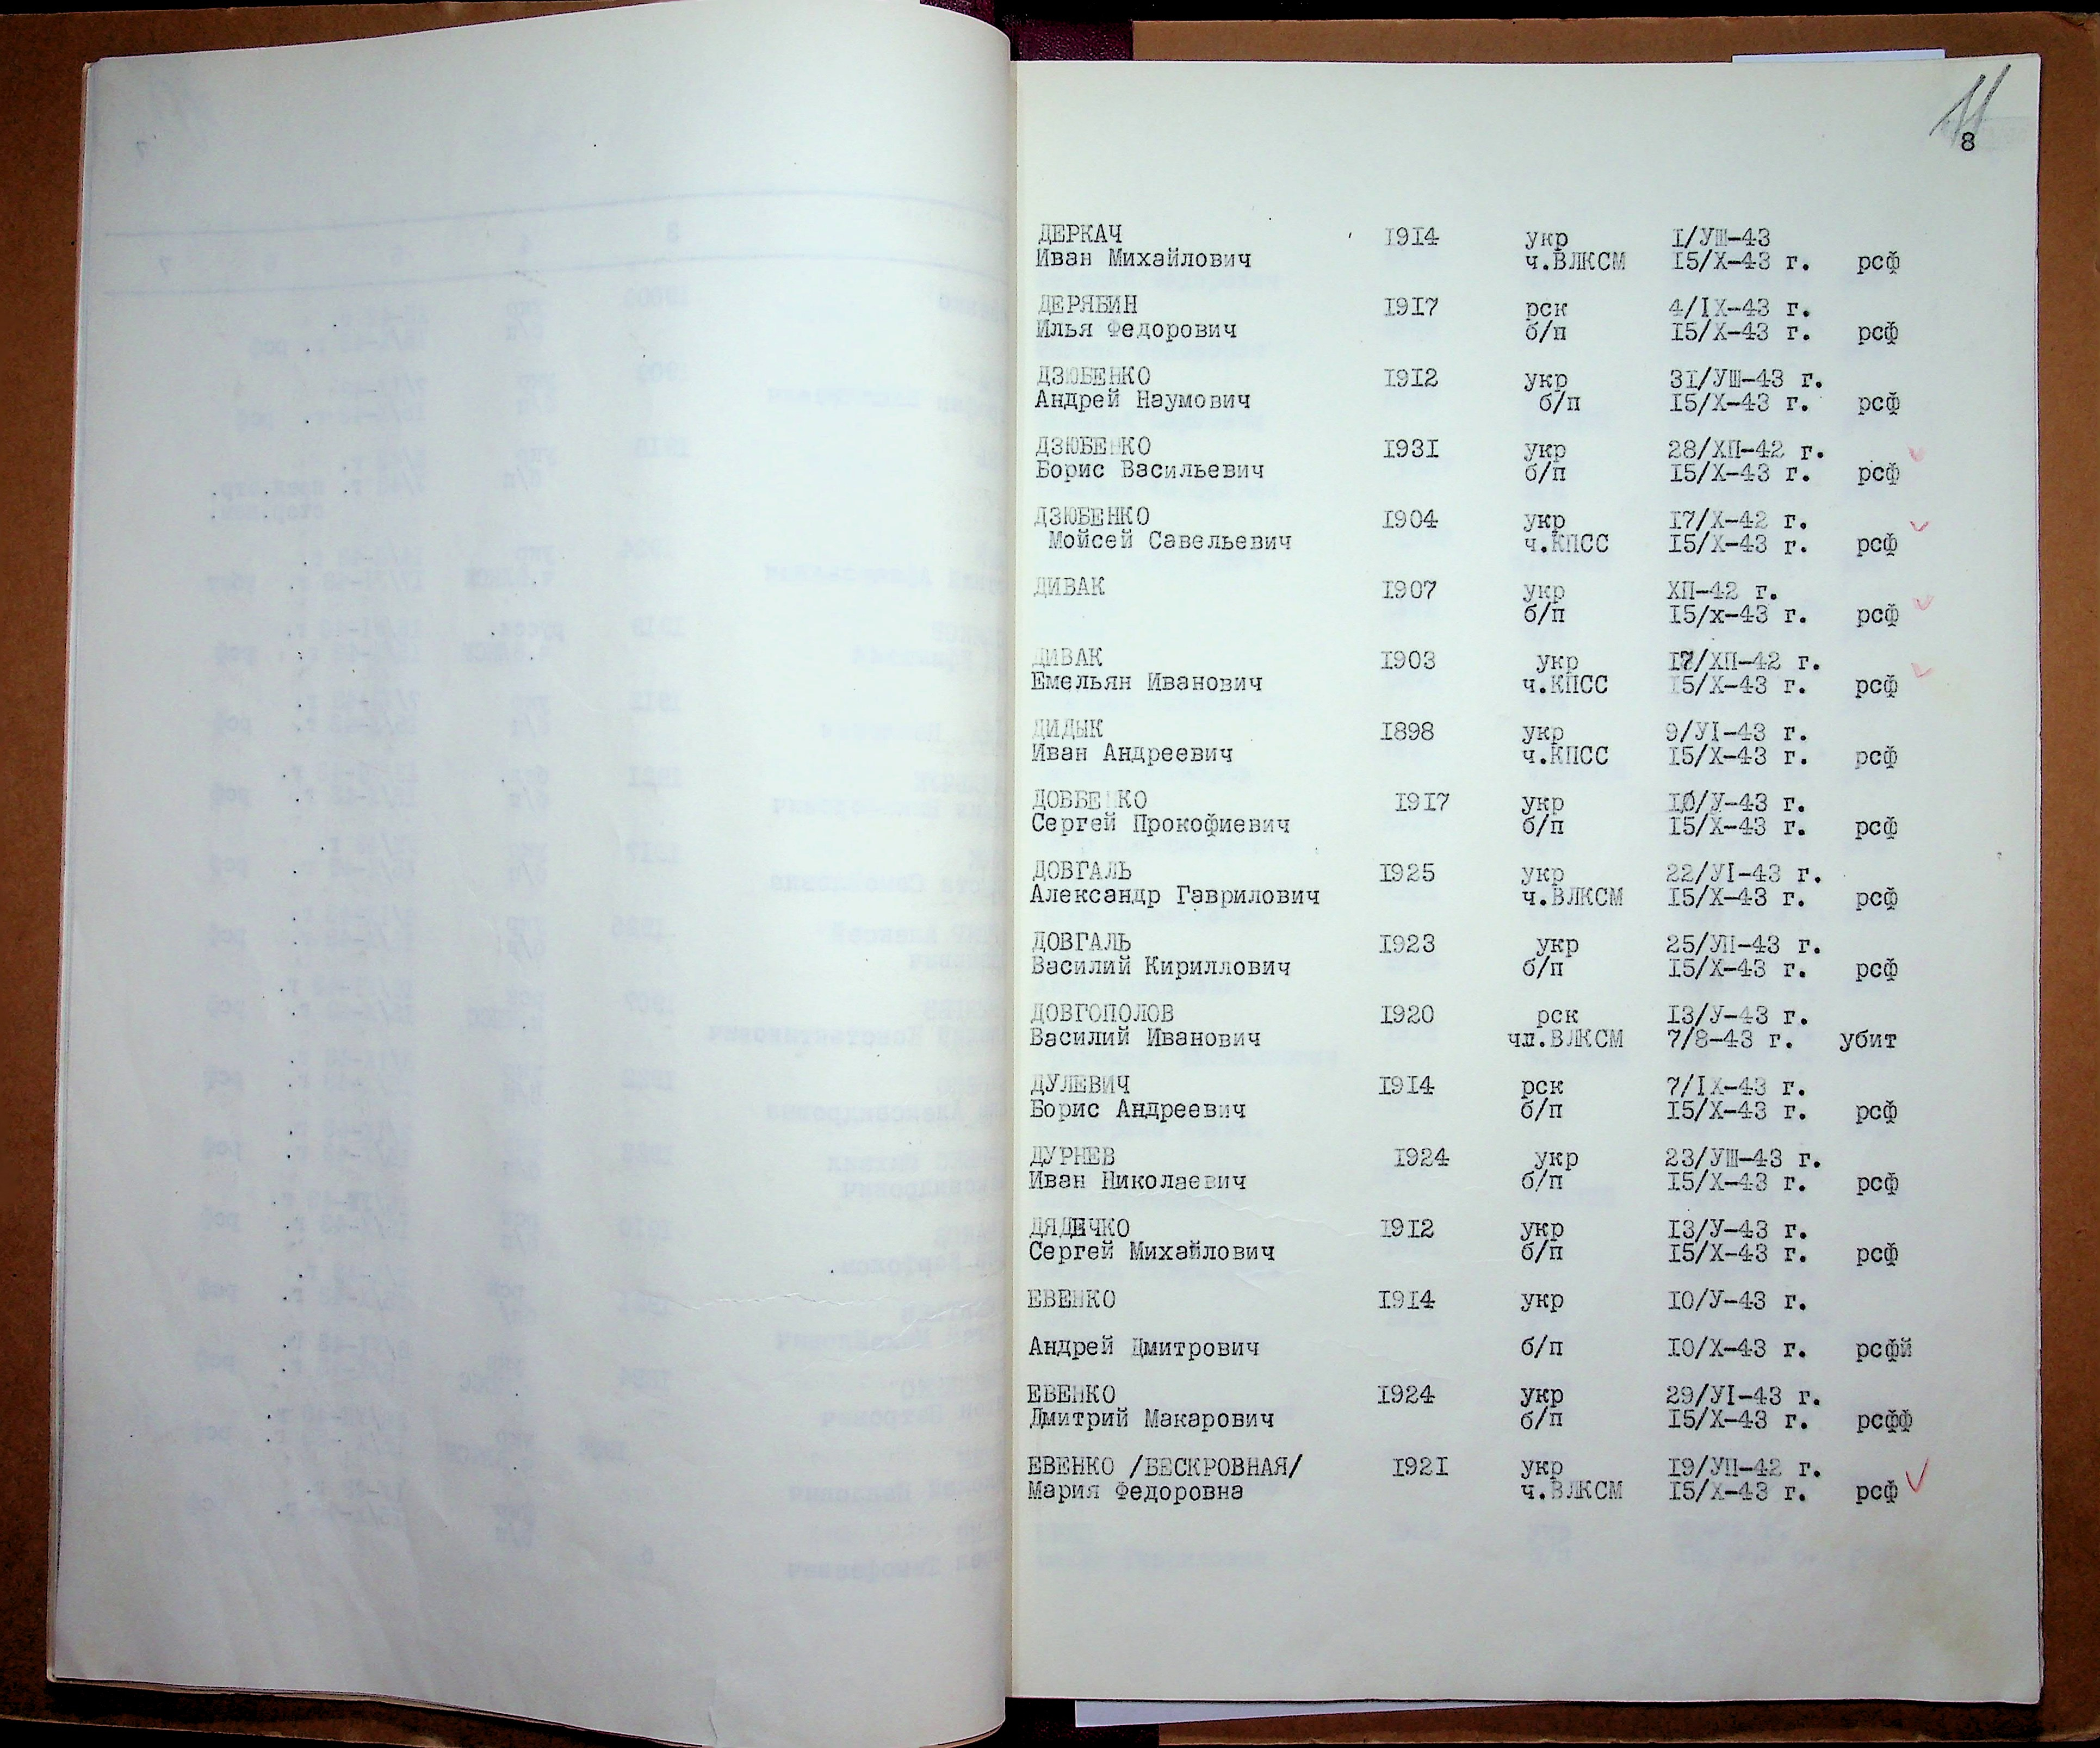 11
8
ДЕРКАЧ 1914 укр 1/УШ-43
Иван Михайлович ч.ВЛКСМ 15/Х-43 г. рсф
ДЕРЯБИН 1917 рск 4/IХ-43 г.
Илья Федорович б/п 15/Х-43 г. рсф
ДЗЮБЕНКО 1912 укр 31/УШ-43 г.
Андрей Наумович б/п 15/Х-43 г. рсф
ДЗЮБЕНКО 1931 укр 28/ХП-42 г.
Борис Васильевич б/п 15/Х-43 г. рсф
ДЗЮБЕНКО 1904 укр 17/Х-42 г.
Мойсей Савельевич ч.КПСС 15/Х-43 г. рсф
ДИВАК 1907 укр ХП-42 г.
б/п 15/х-43 г. рсф
ДИВАК 1903 укр /ХП-42 г.
Емельян Иванович ч.КПСС 15/Х-43 г. рсф
ДИДЫК 1898 укр 9/УI-43 г.
Иван Андреевич ч.КПСС 15/Х-43 г. рсф
ДОВБЕНКО 1917 укр 10/У-43 г.
Сергей Прокофиевич б/п 15/Х-43 г. рсф
ДОВГАЛЬ 1925 укр 22/УI-43 г.
Александр Гаврилович ч.ВЛКСМ 15/Х-43 г. рсф
ДОВГАЛЬ 1923 укр 25/УП-43 г.
Василий Кириллович б/п 15/Х-43 г. рсф
ДОВГОПОЛОВ 1920 рск 13/У-43 г.
Василий Иванович чл.ВЛКСМ 7/8-43 г. убит
ДУЛЕВИЧ 1914 рск 7/IХ-43 г.
Борис Андреевич б/п 15/Х-43 г. рсф
ДУРНЕВ 1924 укр 23/УШ-43 г.
Иван Николаевич б/п 15/Х-43 г. рсф
ДЯДЕЧКО 1912 укр 13/У-43 г.
Сергей Михайлович б/п 15/Х-43 г. рсф
ЕВЕНКО 1914 укр 10/У-43 г.
Андрей Дмитрович б/п 10/Х-43 г. рсфй
ЕВЕНКО 1924 укр 29/УI-43 г.
Дмитрий Макарович б/п 15/Х-43 г. рсфф
ЕВЕНКО /БЕСКРОВНАЯ/ 1921 укр 19/УП-42 г.
Мария Федоровна ч.ВЛКСМ 15/Х-43 г. рсф